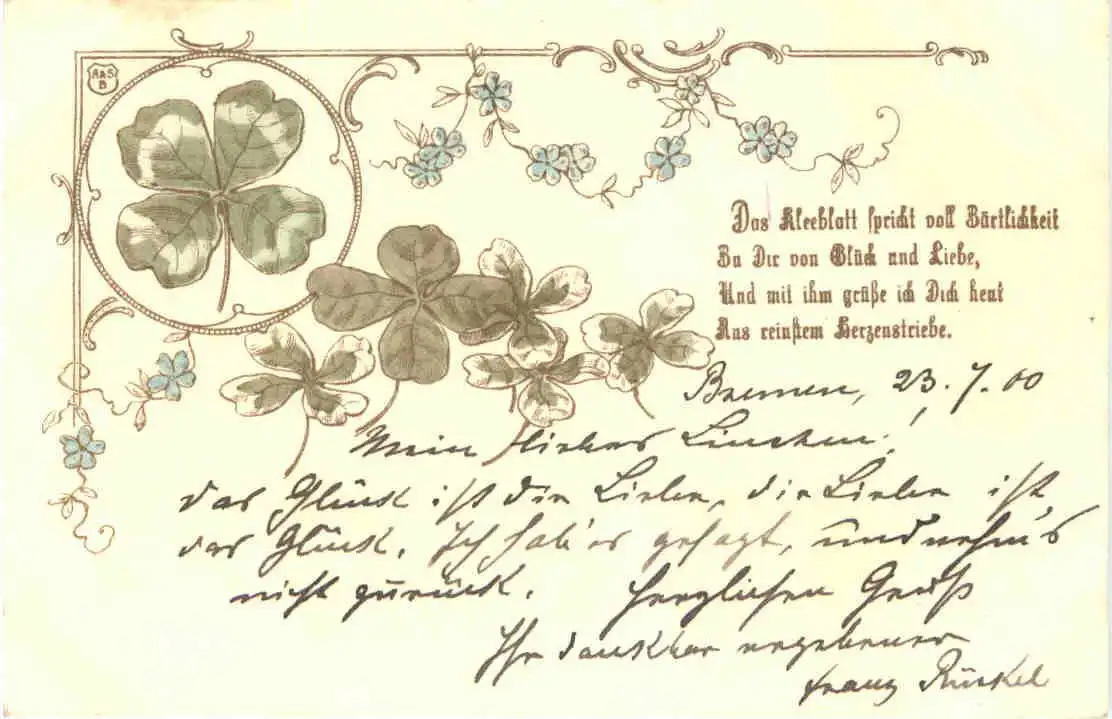 A&S
B
Das Kleeblatt spricht voll Zärtlichkeit
Zu Dir von Glück und Liebe,
Und mit ihm grüße ich Dich heut
Aus reinstem Herzenstriebe.
Bremen, 23.7.00
Mein liebes Linchen!
das Glück ist die Liebe, die Liebe ist
das Glück. Ich hab' es gesagt, und nehm's
nicht zurück. Herzlichen Gruß
Ihr dankbar ergebener
Franz